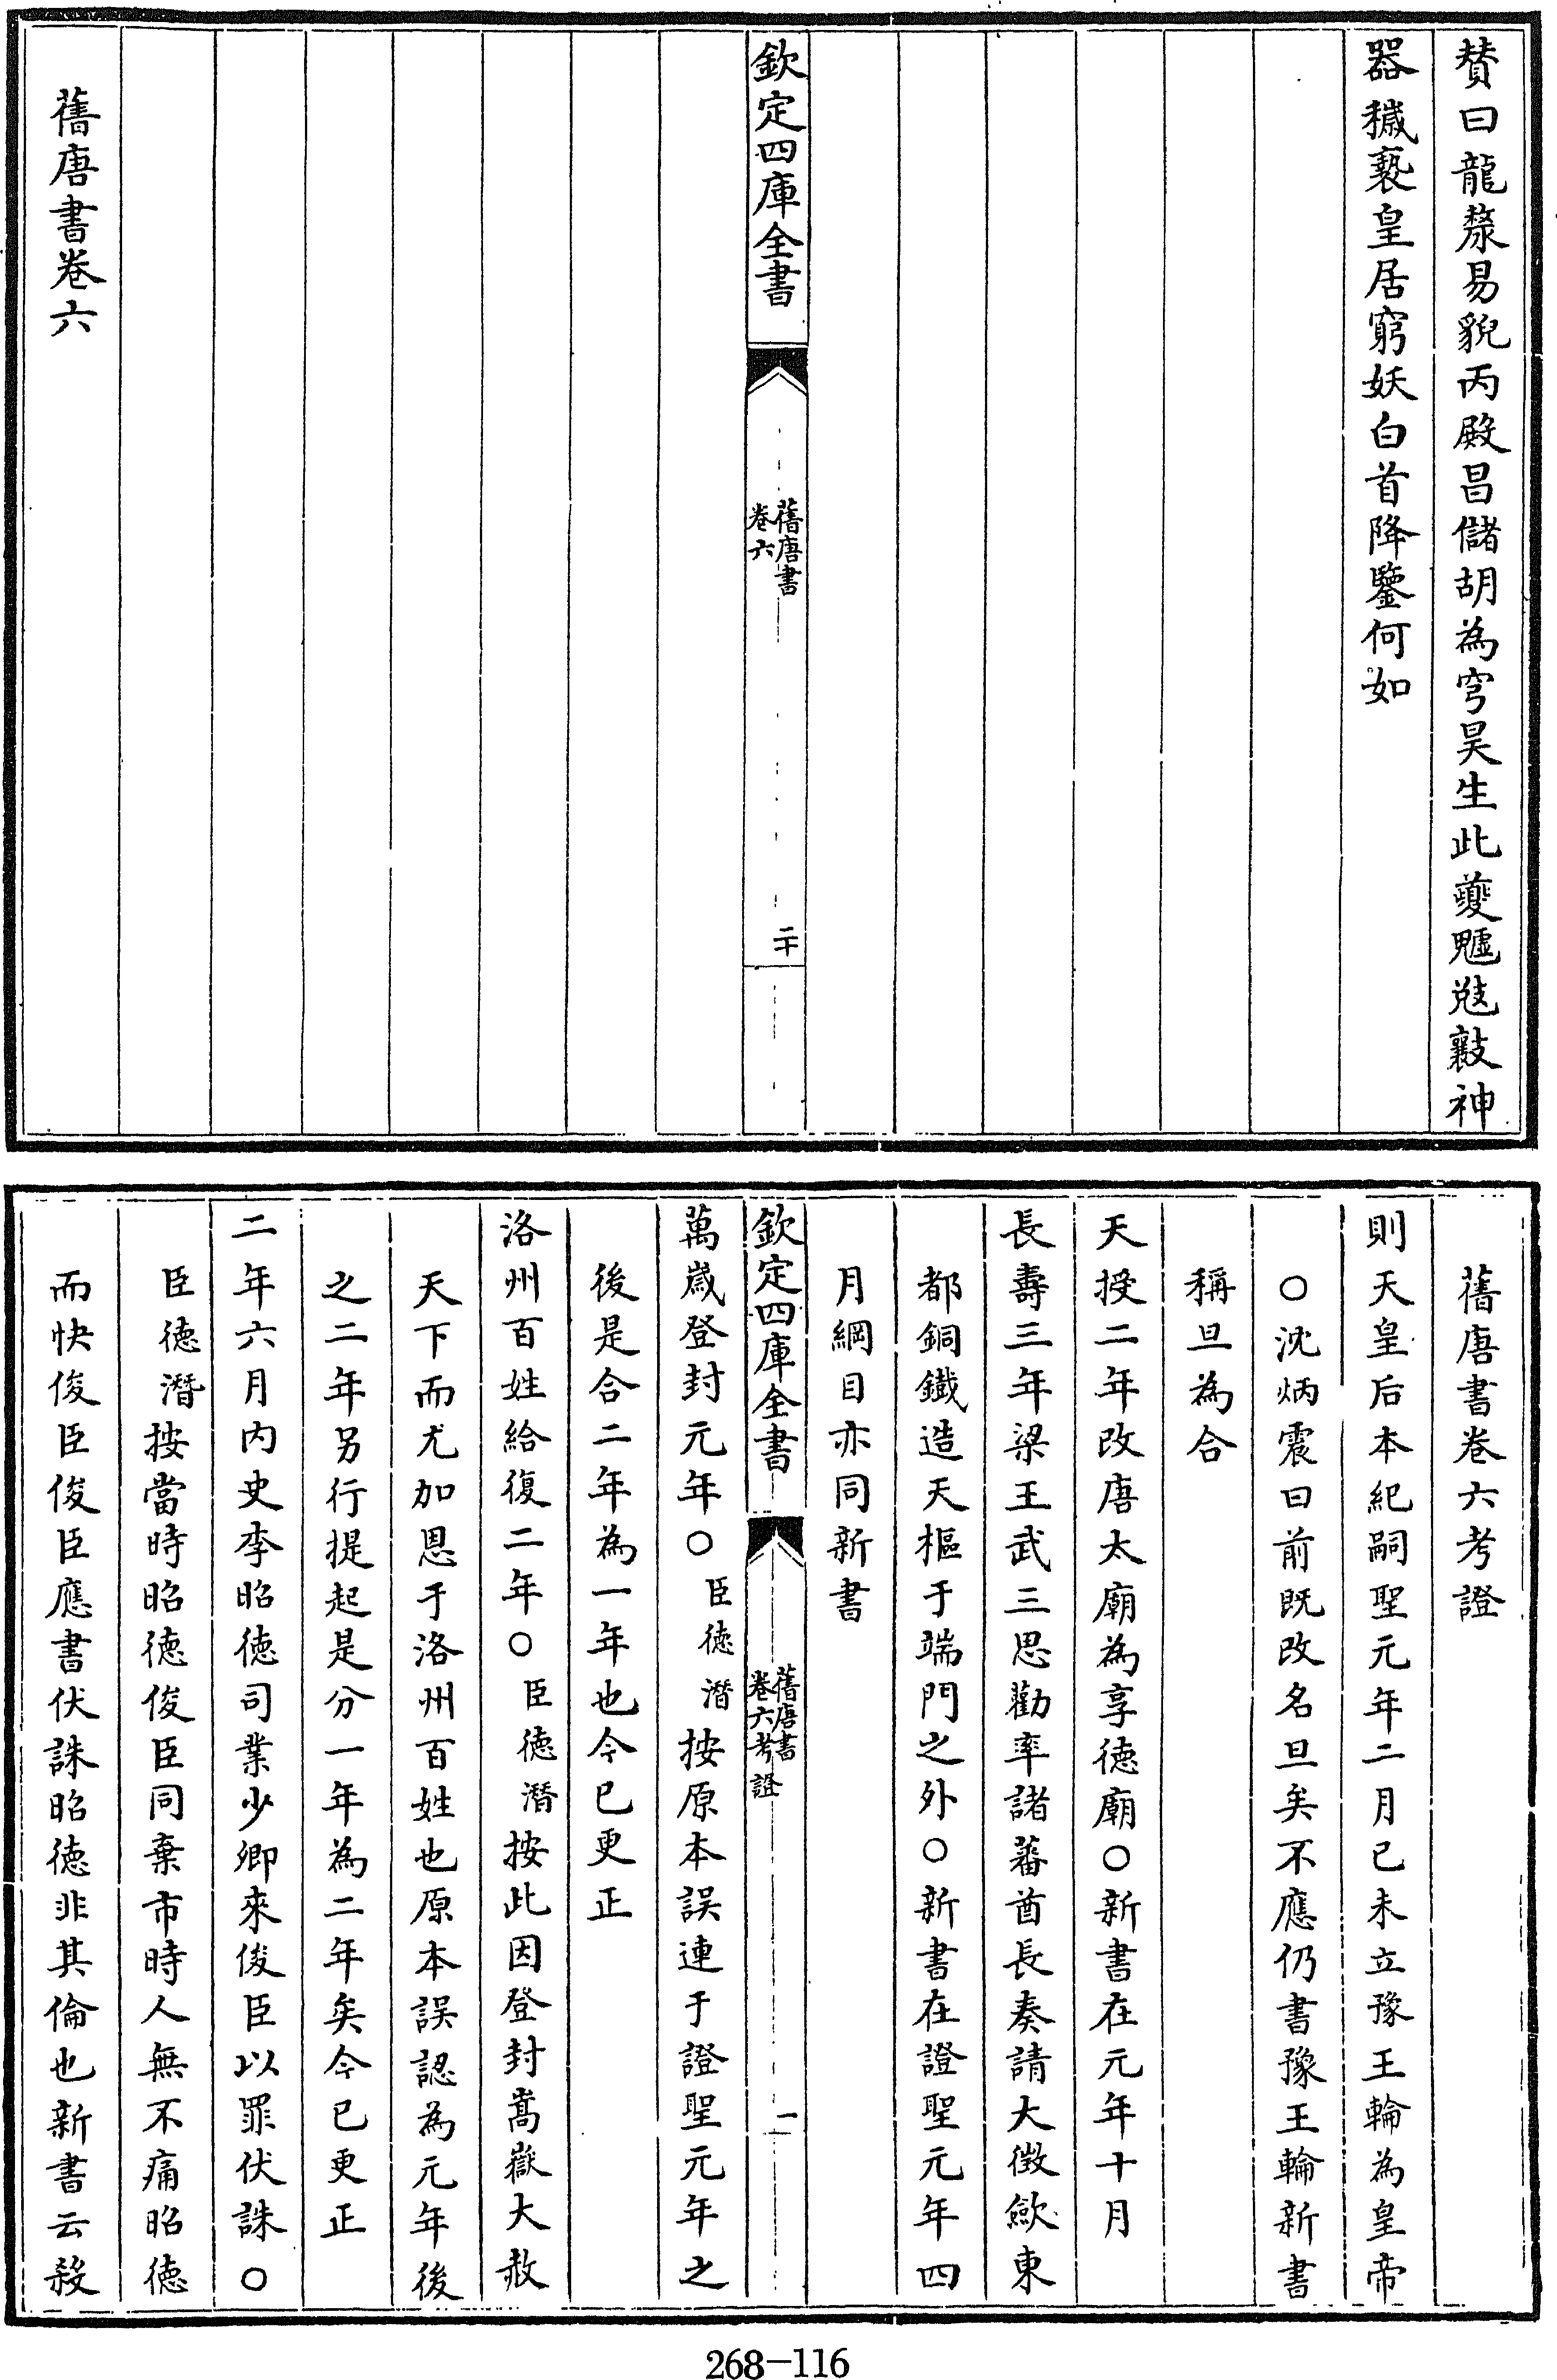 贊曰龍漦易貌丙殿昌儲胡為穹昊生此夔魖敓𣀮神
器穢褻皇居窮妖白首降鑒何如
欽定四庫全書
舊唐書
卷六
二十
舊唐書卷六
舊唐書卷六考證
則天皇后本紀嗣聖元年二月已未立豫王輪為皇帝
○沈炳震曰前既改名旦矣不應仍書豫王輪新書
稱旦為合
天授二年改唐太廟為享德廟○新書在元年十月
長壽三年梁王武三思勸率諸蕃酋長奏請大徵歛東
都銅鐵造天樞于端門之外○新書在證聖元年四
月綱目亦同新書
欽定四庫全書
舊唐書
卷六考證
一
萬歲登封元年○臣德潛按原本誤連于證聖元年之
後是合二年為一年也今已更正
洛州百姓給復二年○臣德潛按此因登封嵩嶽大赦
天下而尤加恩于洛州百姓也原本誤認為元年後
之二年另行提起是分一年為二年矣今已更正
二年六月內史李昭德司業少卿來俊臣以罪伏誅○
臣德潛按當時昭德俊臣同棄市時人無不痛昭德
而快俊臣俊臣應書伏誅昭德非其倫也新書云殺
268-116